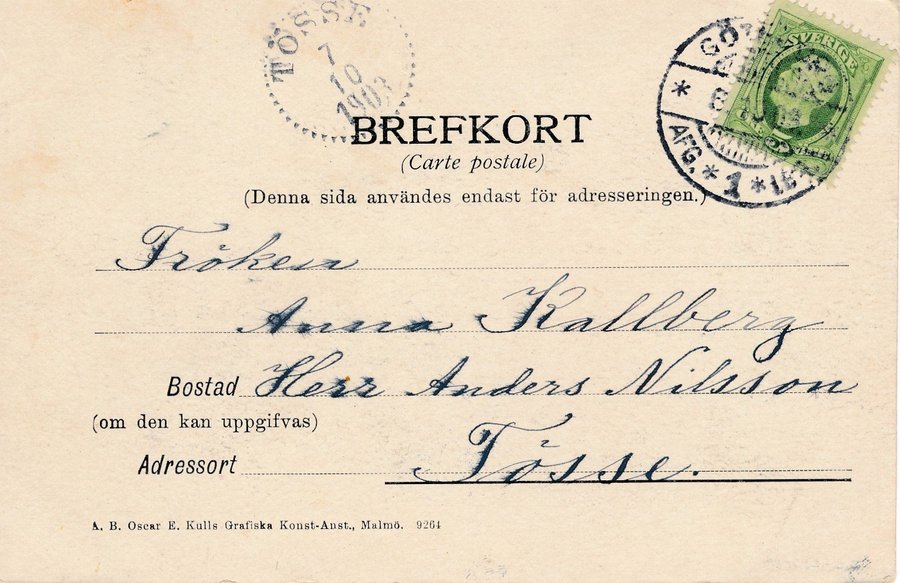 TÖSSE
7
10
1903
SVERIGE
AFG. * 1 *
BREFKORT
(Carte postale)
(Denna sida användes endast för adresseringen.)
Fröken
Anna Kallberg
Bostad Herr Anders Nilsson
(om den kan uppgifvas)
Adressort Tösse.
A. B. Oscar E. Kulls Grafiska Konst-Anst., Malmö. 9264